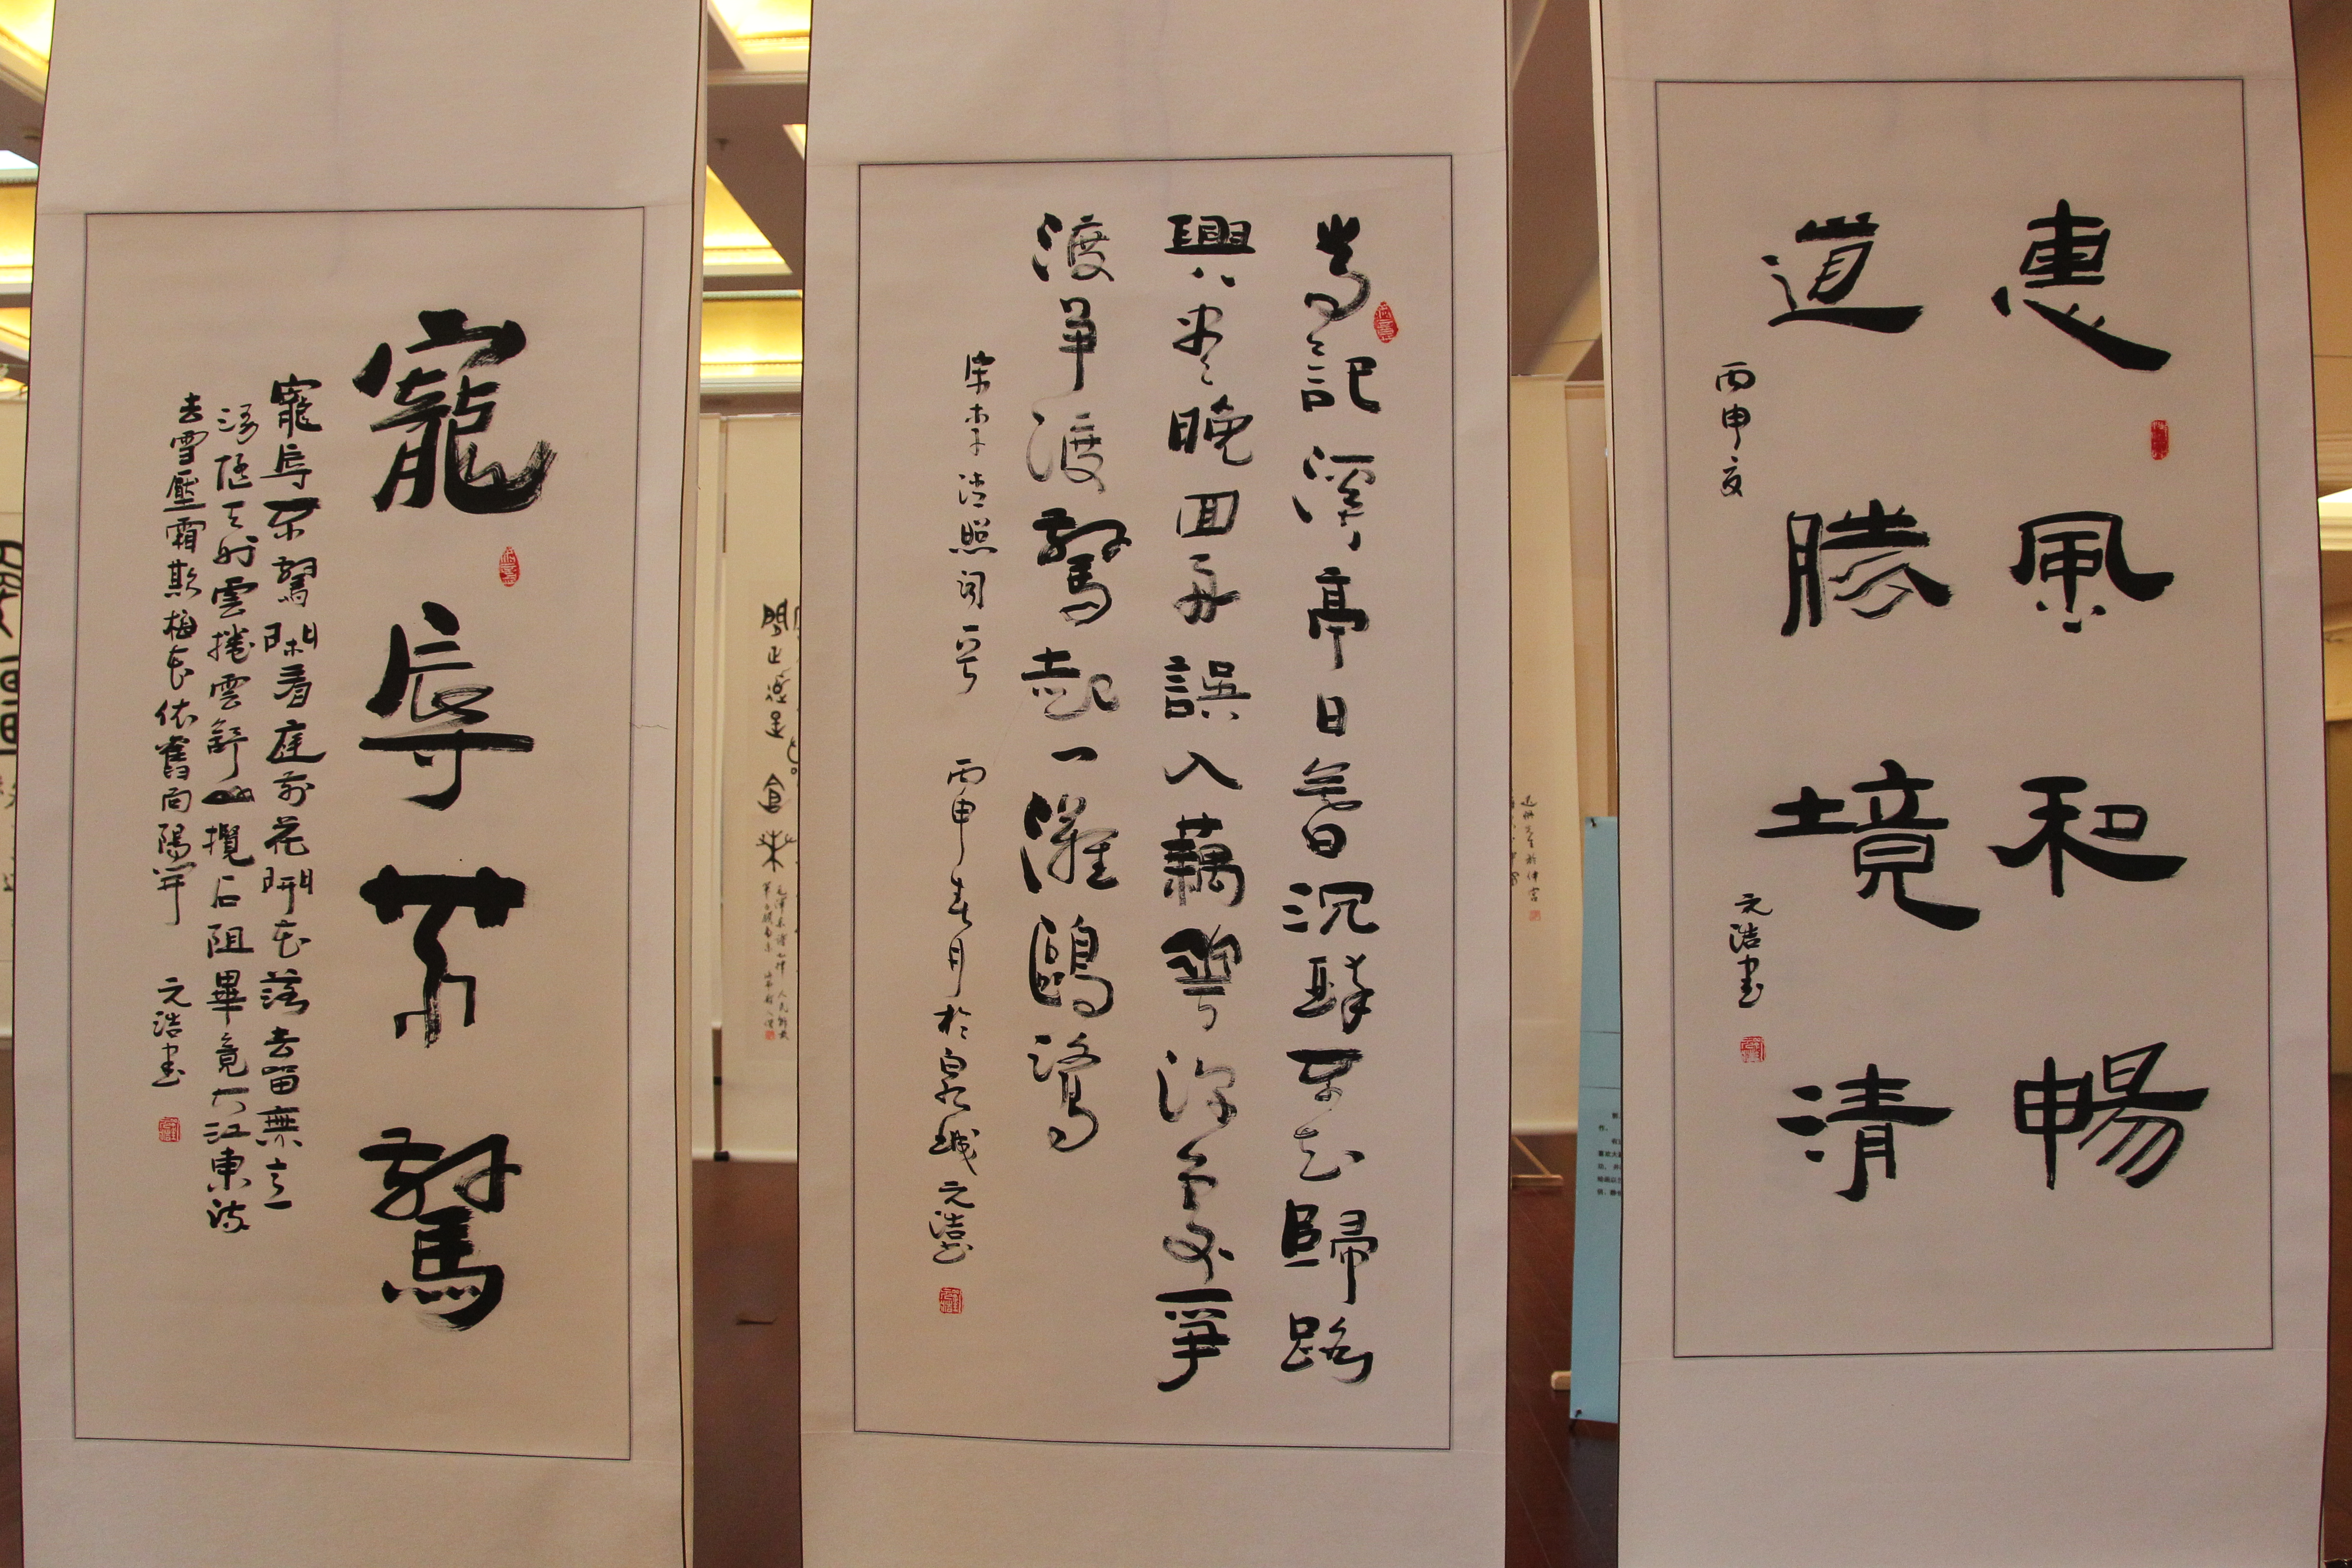 惠風和暢
道勝境清
丙申夏
元浩書
常記溪亭日暮沉醉不知歸路
興盡晚回舟誤入藕花深處爭
渡爭渡驚起一灘鷗鷺
宋李清照詞一首 丙申春月於泉城元浩書
寵辱不驚
寵辱不驚閑看庭前花開花落去留無意
漫隨天外雲捲雲舒山攪石阻畢竟大江東流
去雪壓霜欺梅花依舊向陽開 元浩書